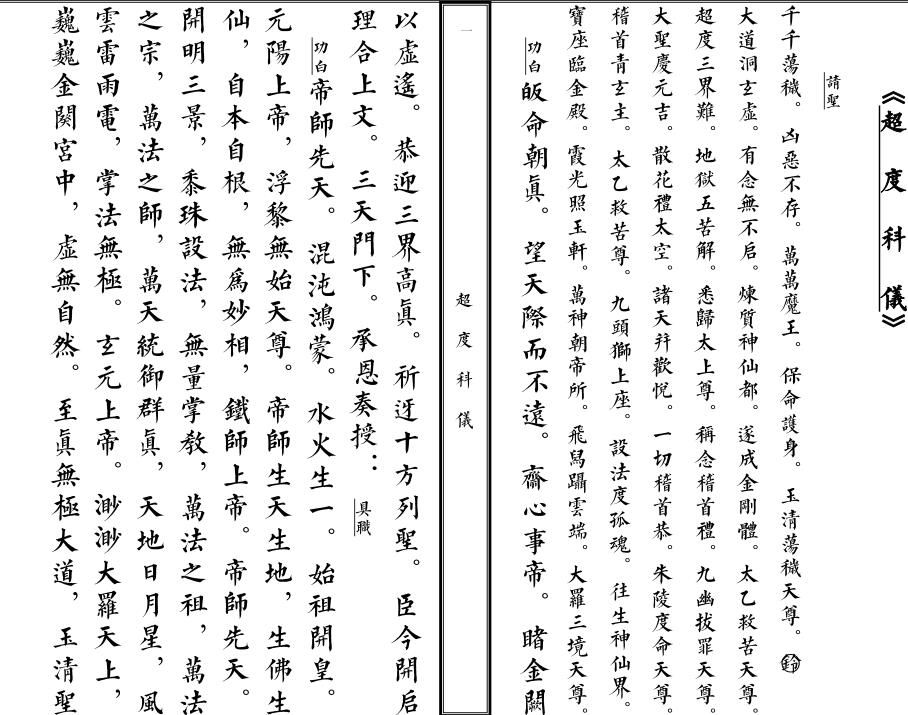 《超度科儀》
請聖
千千蕩穢。凶惡不存。萬萬魔王。保命護身。玉清蕩穢天尊。鈴
大道洞玄虛。有念無不启。煉質神仙都。遂成金剛體。太乙救苦天尊。
超度三界難。地獄五苦解。悉歸太上尊。稱念稽首禮。九幽拔罪天尊。
大聖慶元吉。散花禮太空。諸天并歡悅。一切稽首恭。朱陵度命天尊。
稽首青玄主。太乙救苦尊。九頭獅上座。設法度孤魂。往生神仙界。
寶座臨金殿。霞光照玉軒。萬神朝帝所。飛舄躡雲端。大羅三境天尊。
功白皈命朝眞。望天際而不遠。齋心事帝。睹金闕
一
超度科儀
以虛遙。恭迎三界高眞。祈迓十方列聖。臣今開启
理合上文。三天門下。承恩奏授：具職
功白帝師先天。混沌鴻蒙。水火生一。始祖開皇。
元陽上帝，浮黎無始天尊。帝師生天生地，生佛生
仙，自本自根，無爲妙相，鐵師上帝。帝師先天。
開明三景，黍珠設法，無量掌教，萬法之祖，萬法
之宗，萬法之師，萬天統御群眞，天地日月星，風
雲雷雨電，掌法無極。玄元上帝。渺渺大羅天上，
巍巍金闕宮中，虛無自然。至眞無極大道，玉清聖